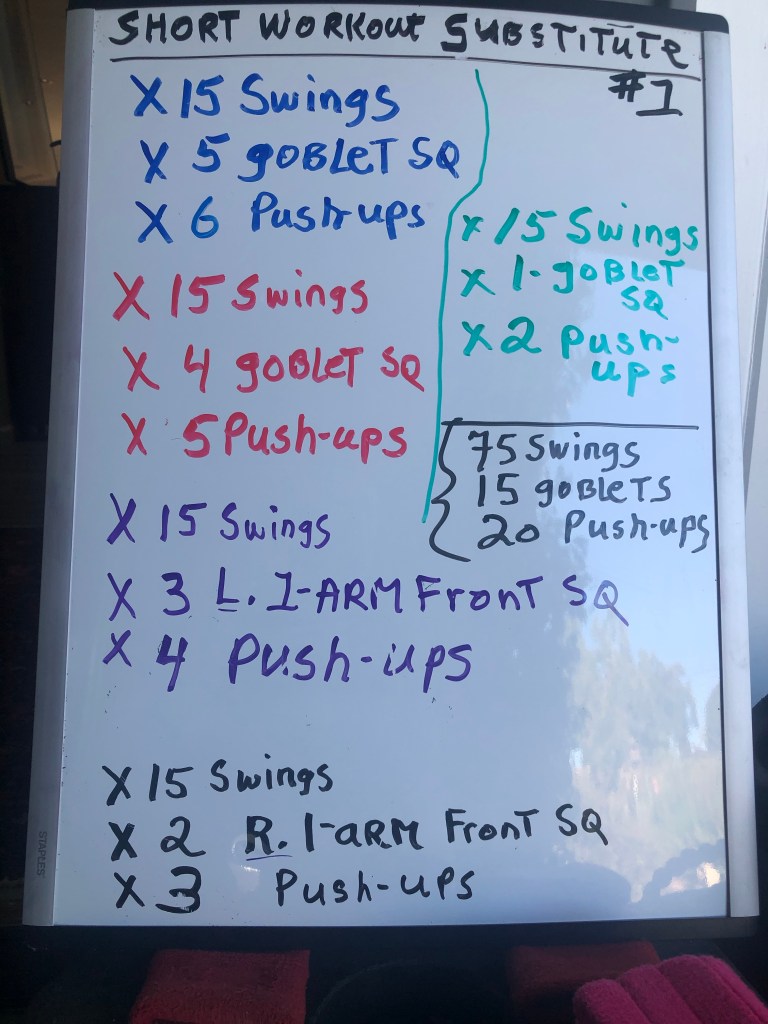 SHORT WORKOUT SUBSTITUTE
#1
X 15 Swings
X 5 goBLeT SQ
X 6 Push-ups
X 15 Swings
X 4 goBLeT SQ
X 5 Push-ups
X 15 Swings
X 3 L. 1-ARM FronT SQ
X 4 Push-ups
X 15 Swings
X 2 R. 1-aRM FronT SQ
X 3 Push-ups
x 15 Swings
x 1-goBLeT
SQ
x 2 Push-
ups
75 Swings
15 goBLeTS
20 Push-ups
STAPLES